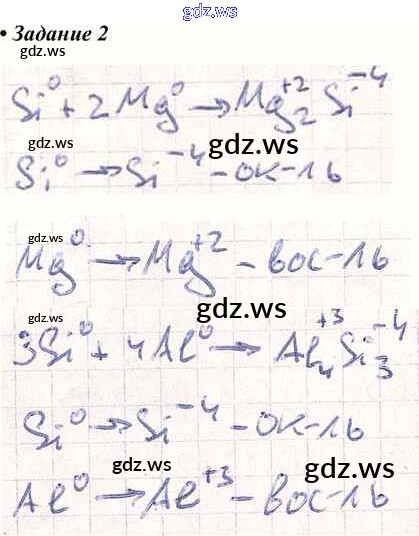 gdz.ws
• Задание 2
gdz.ws
gdz.ws
Si⁰ + 2Mg⁰ → Mg₂⁺² Si⁻⁴
gdz.ws
Si⁰ → Si⁻⁴ - ок-ль
gdz.ws
gdz.ws
Mg⁰ → Mg⁺² - вос-ль
gdz.ws
gdz.ws
3Si⁰ + 4Al⁰ → Al₄⁺³ Si₃⁻⁴
Si⁰ → Si⁻⁴ - ок-ль
gdz.ws
gdz.ws
Al⁰ → Al⁺³ - вос-ль